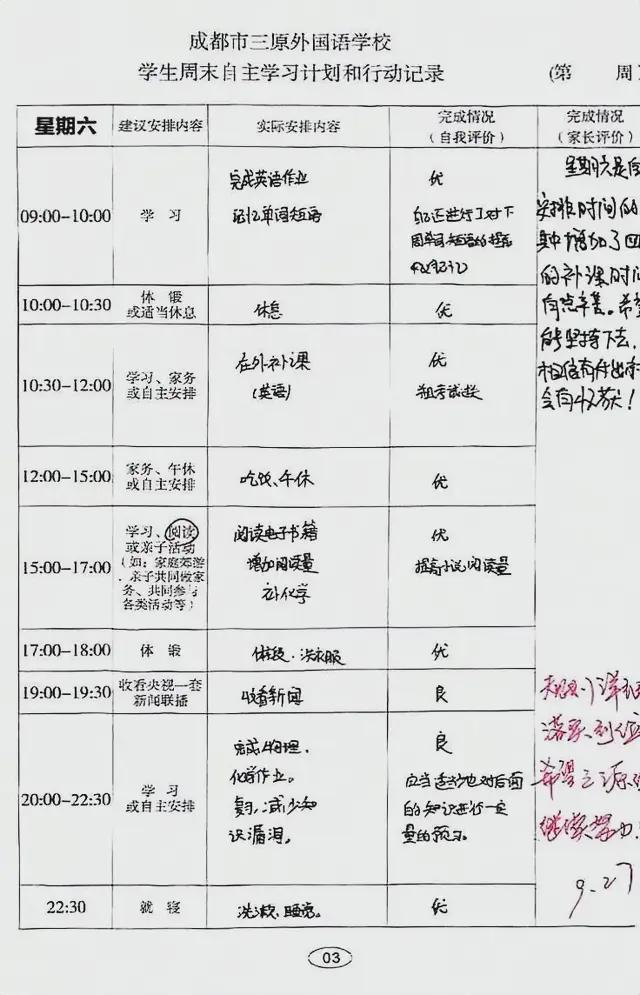 成都市三原外国语学校
学生周末自主学习计划和行动记录
(第 周)
星期六
建议安排内容
实际安排内容
完成情况
(自我评价)
完成情况
(家长评价)
09:00-10:00
学 习
完成英语作业
记忆单词短语
优
周单词、短语的
10:00-10:30
休 锻
或适当休息
休息
优
10:30-12:00
学习、家务
或自主安排
在外补课
(英语)
优
12:00-15:00
家务、午休
或自主安排
吃饭、午休
优
15:00-17:00
学习、阅读
或亲子活动
(如:家庭郊游
、亲子共同做家
务、共同参与
各类活动等)
阅读电子书籍
增加阅读量
补化学
优
提高小说阅读量
17:00-18:00
体 锻
体锻、洗衣服
优
19:00-19:30
收看央视一套
新闻联播
收看新闻
良
20:00-22:30
学 习
或自主安排
完成物理、
化学作业。
复习,减少知
识漏洞。
良
应当适当地对后面
的知识进行一定
量的预习。
22:30
就 寝
洗漱、睡觉。
优
星期六是自
安排时间的
其中增加了四
的补课时间
有点辛苦。希望
能坚持下去,
相信有付出就
会有收获!
落实到位
希望
继续努力
9.27
03